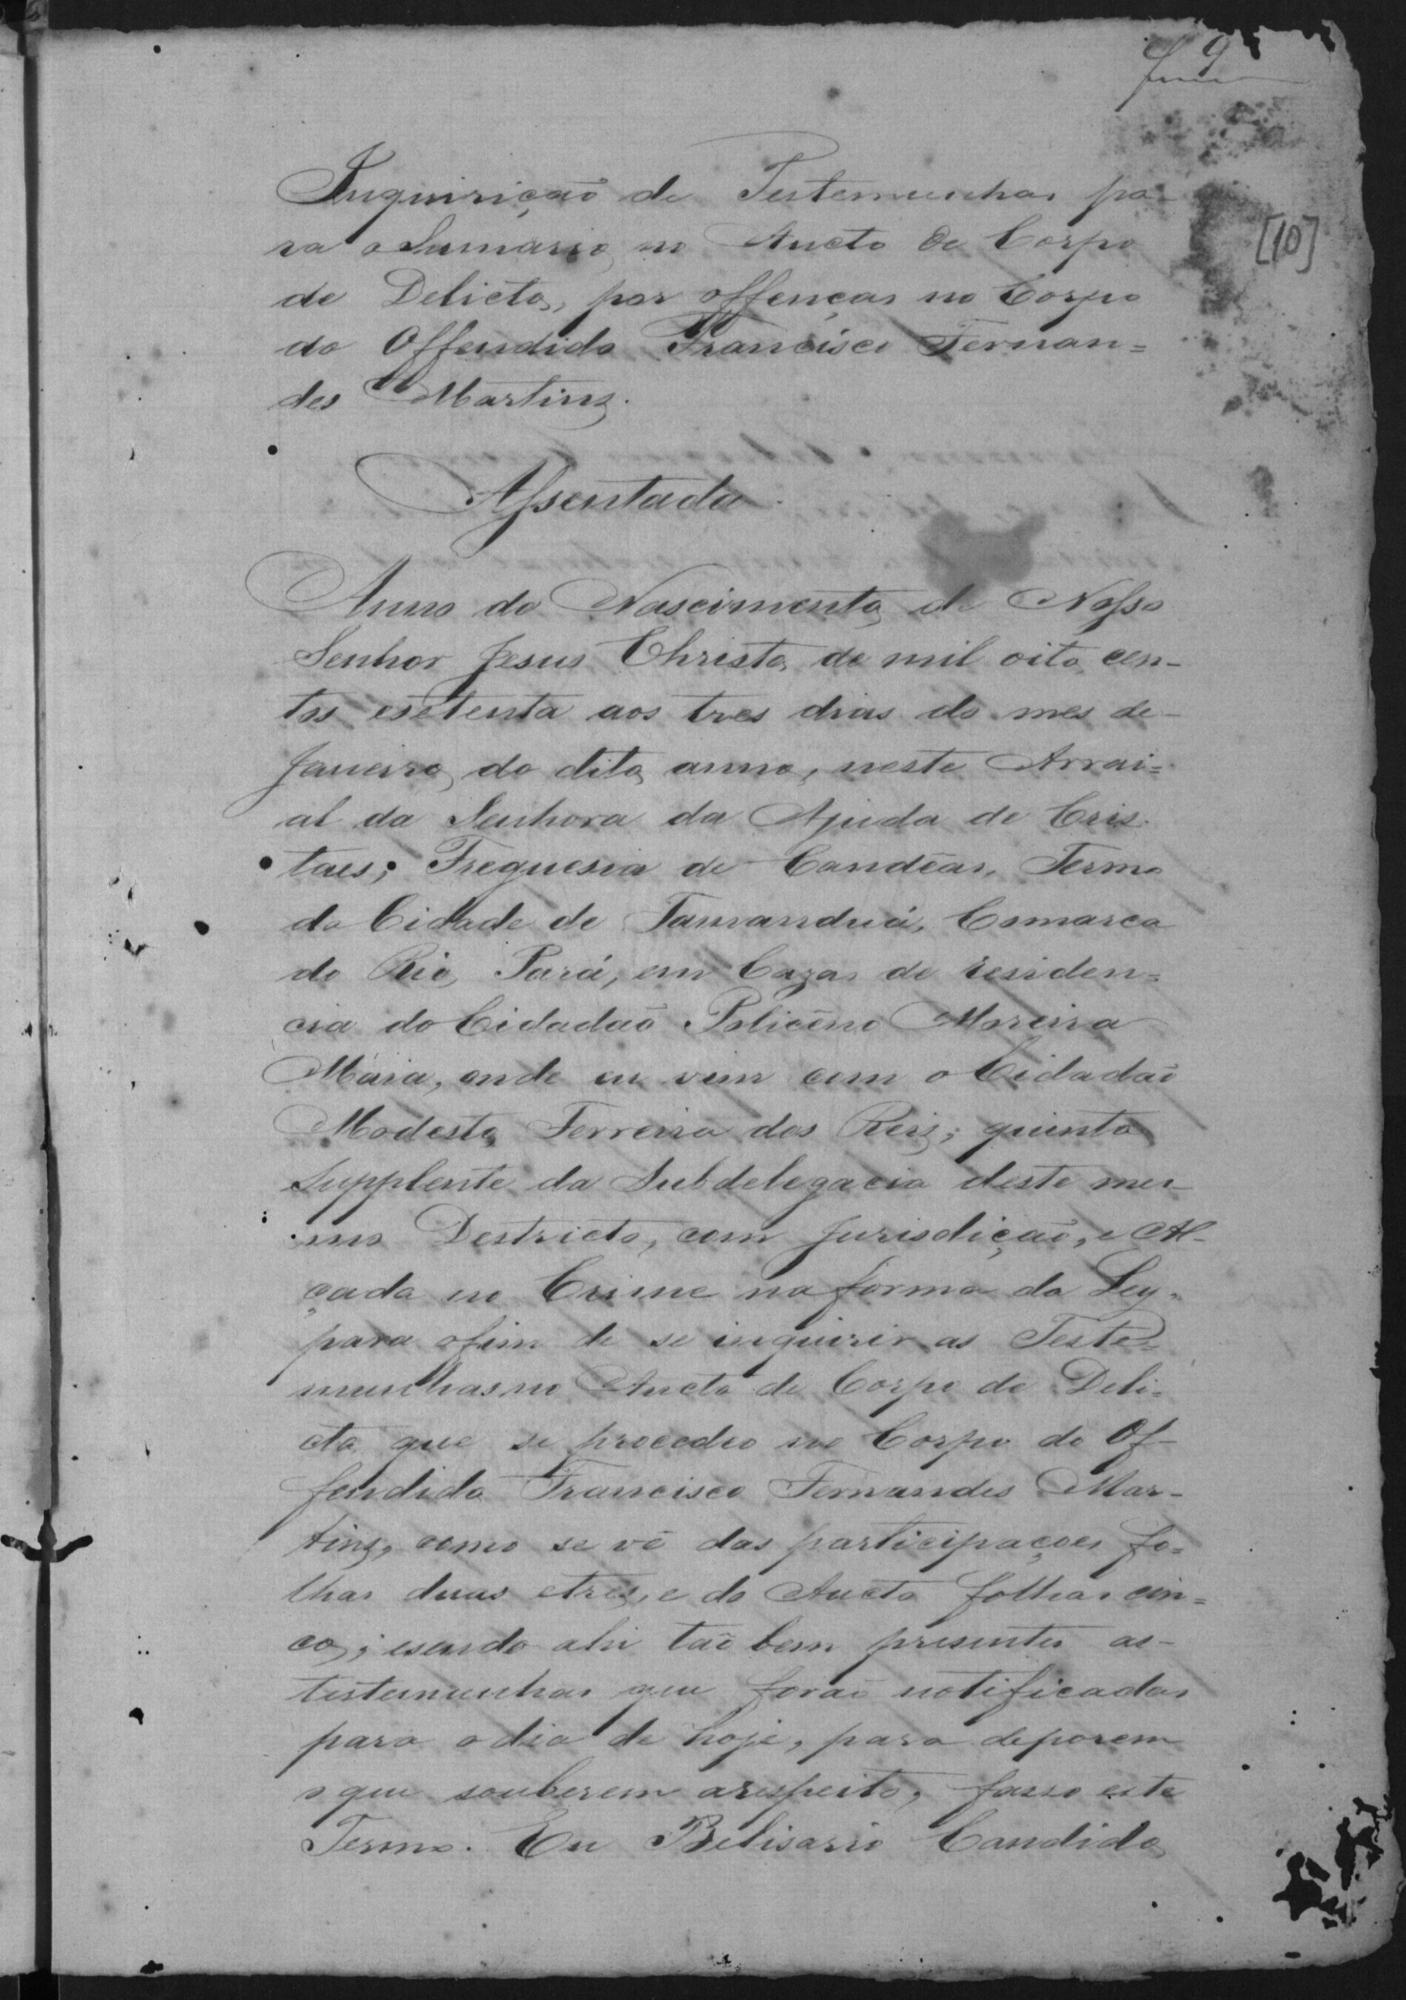 9
[10]
Inquirição de Testemunhas pa-
ra o Sumario no Aucto de Corpo
de Delicto, por offenças no Corpo
do Offendido Francisco Fernan=
des Martins.
Assentada.
Anno do Nascimento de Nosso
Senhor Jesus Christo de mil oito cen-
tos esetenta aos tres dias do mes de
Janeiro do dito anno, neste Arrai=
al da Senhora da Ajuda de Cris.
taes; Freguesia de Candêas, Termo
da Cidade de Tamanduá, Comarca
do Rio Pará, em Cazas de residen=
cia do Cidadaõ Policeno Moreira
Maia, onde eu vim com o Cidadaõ
Modesto Ferreira dos Reis; quinto
Supplente da Subdelegacia deste mes
mo Destricto, com Jurisdicçaõ, e Al-
çada no Crime na forma da Ley,
para ofim de se inquirir as Teste=
munhas no Aucto de Corpo de Deli=
cto que se procedeo no Corpo do Of-
fendido Francisco Fernandes Mar-
tins, como se vê das participaçoes fo=
lhas duas etres, e do Aucto folhas cin=
co; esendo ahi taõ bem presentes as-
testemunhas que foraõ notificadas
para odia de hoje, para deporem
o que souberem arespeito, fasso este
Termo. Eu Belisario Candido